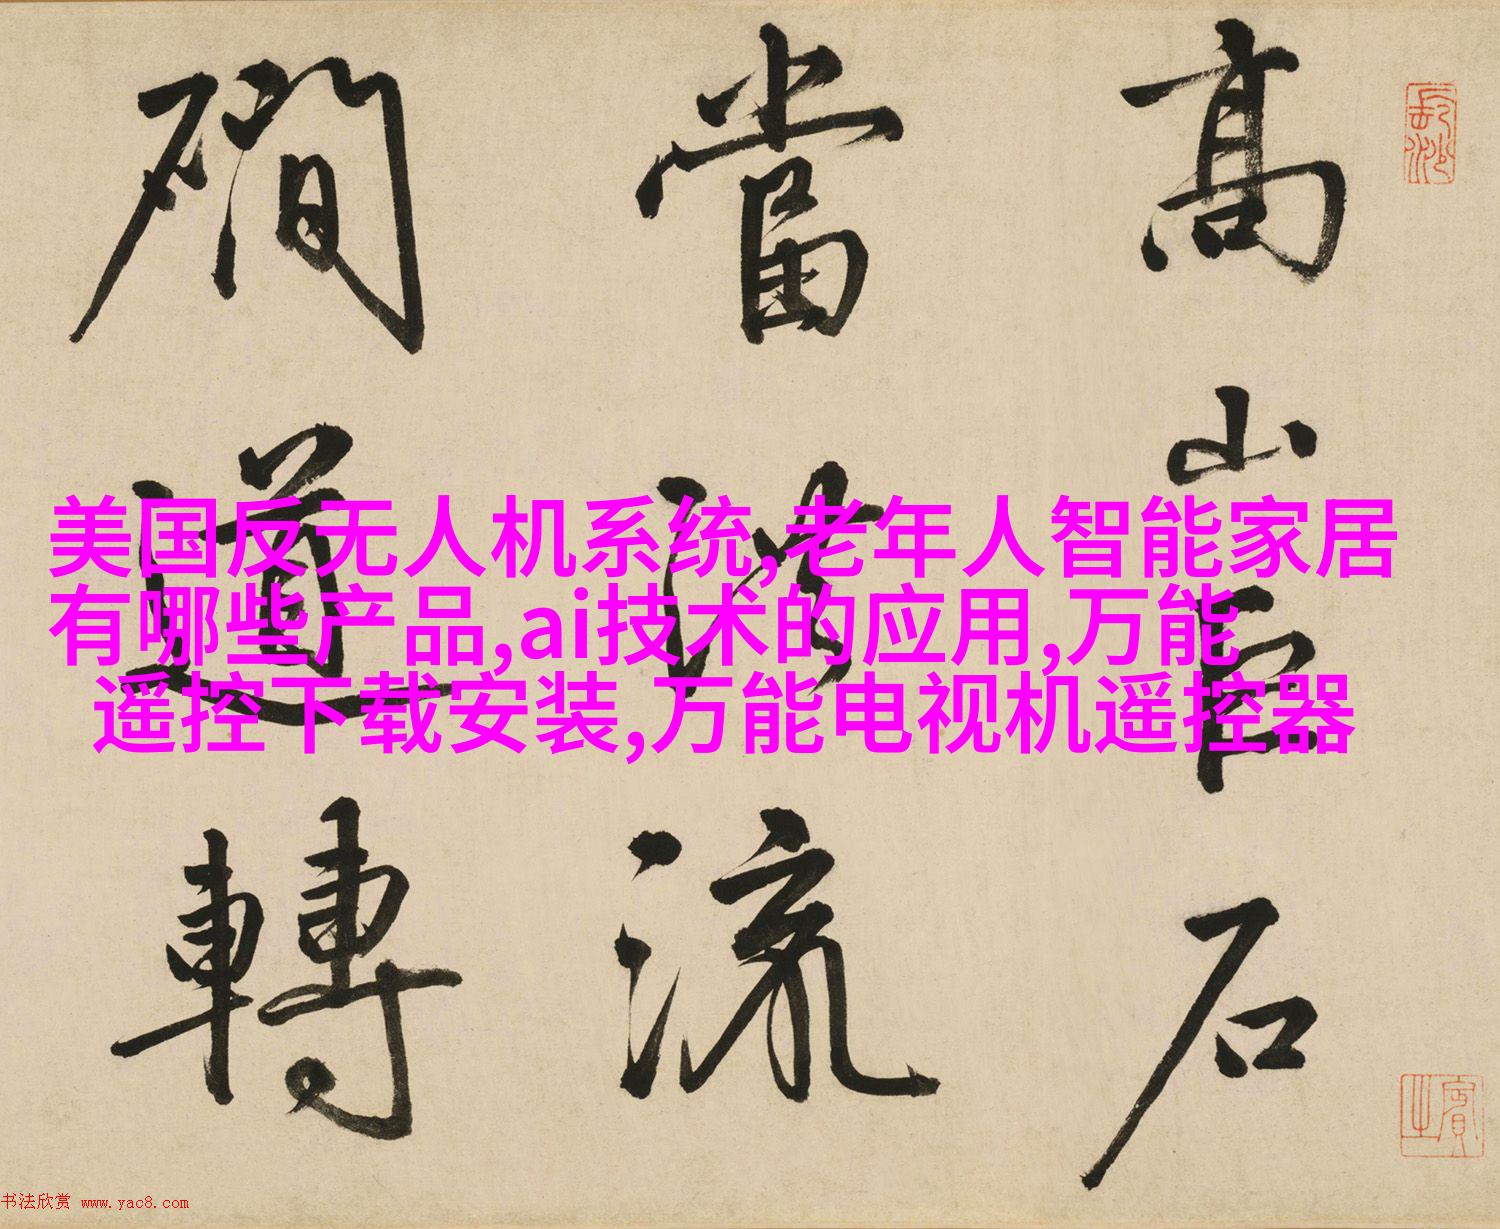 美国反无人机系统,老年人智能家居
有哪些产品,ai技术的应用,万能
遥控下载安装,万能电视机遥控器
長沙
高山巨石
當洪流
磵道轉
賓之
书法欣赏 www.yac8.com